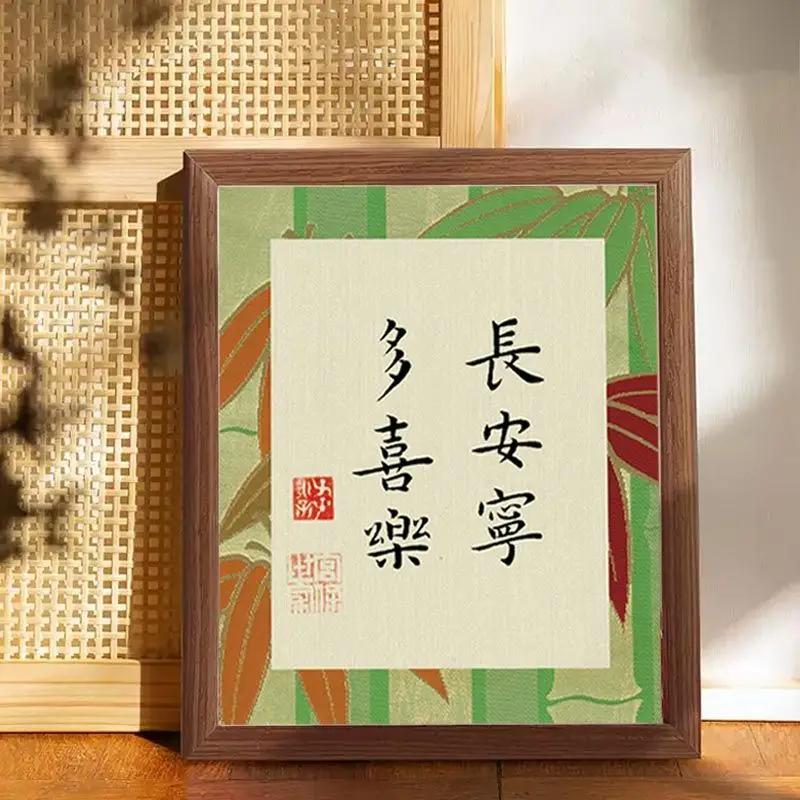 長安寧
多喜樂